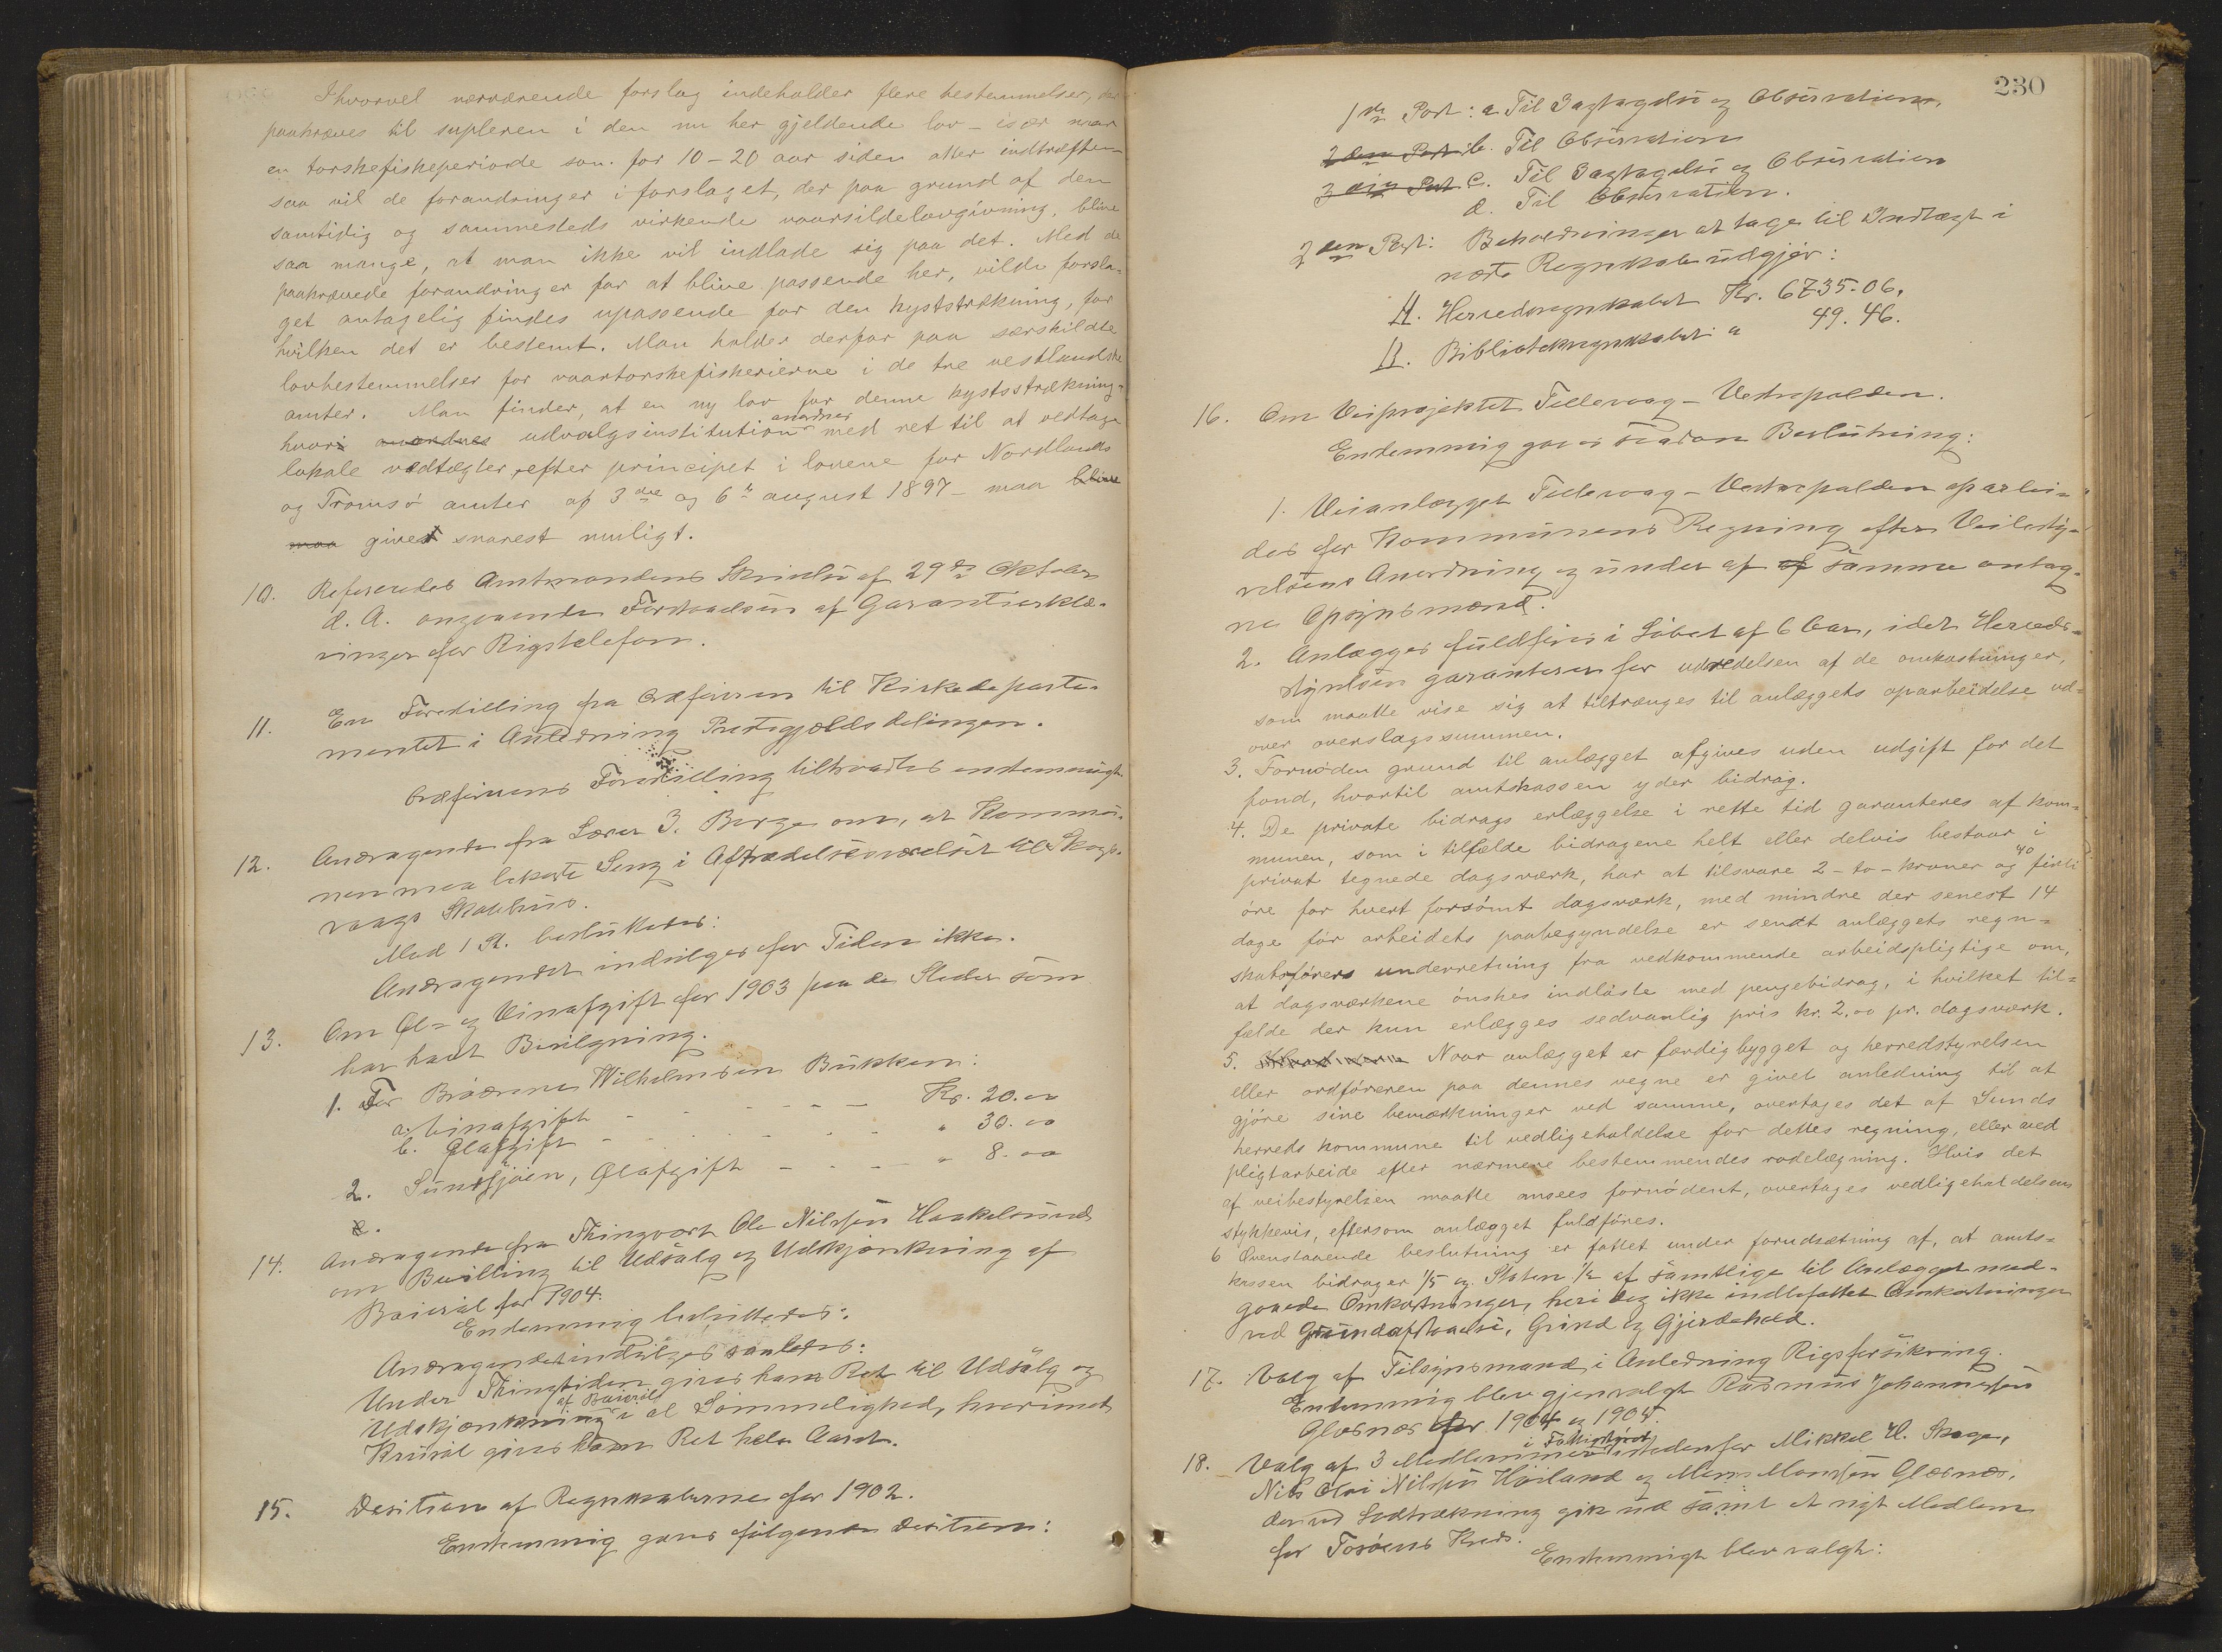 Ihvorvel nærværende forslag indeholder flere bestemmelser, der
paakræves til supleren i den nu her gjeldende lov – især naar
en torskefiskeperiode som for 10–20 aar siden atter indtræffer –
saa vil de forandringer i forslaget, der paa grund af den
samtidig og sammesteds virkende vaarsildelovgivning, blive
saa mange, at man ikke vil indlade sig paa det. Med de
paakrævede forandringer for at blive passende her, vilde forsla-
get antagelig findes upassende for den kyststrækning, for
hvilken det er bestemt. Man holder derfor paa særskildte
lovbestemmelser for vaartorskefiskerierne i de tre vestlandske
amter. Man finder, at en ny lov for denne kyststrækning –
hvori anordnes udvalgsinstitution anordner med ret til at vedtage
lokale vedtægter, efter principet i lovene for Nordlands
og Tromsö amter af 3die og 6te august 1897 – maa blive
maa gives snarest muligt.
10. Refereredes Amtmandens Skrivelse af 29de Oktober
d. A. angaaende Fornyelsen af Garantierklæ-
ringer for Rigstelefon.
11. En Forestilling fra Ordføreren til Kirkedeparte-
mentet i Anledning Prestegjeldsdelingen.
Ordførerens Forestilling tiltraadtes enstemmigt
12. Andragende fra Lærer J. Berge om, at Kommu-
nen maa bekoste Seng i Aftrædelsesværelset til Skogs-
vaags Skolehus.
Mod 1 St. besluttedes:
Andragendet indvilges for Tiden ikke.
13. Om Øl- og Vinafgift for 1903 paa de Steder som
har havt Bevilgning.
1. For Brødrene Wilhelmsen Bukken:
a. Vinafgift – – – – Kr. 20.00
b. Ølafgift – – – – " 30.00
2. Sundsjøen, Ølafgift – – – – " 8.00
14. Andragende fra Thingvert Ole Nilssen Haakelsund
om Bevilling til Udsalg og Udskjænkning af
Baierøl for 1904.
Enstemmig besluttedes:
Andragendet indvilges saaledes:
Under Thingtiden gives ham Ret til Udsalg og
Udskjænkning af Baierøl i al Sømmelighed, hvorimod
Krusøl gives ham Ret hele Aaret.
15. Desition af Regnskaberne for 1902.
Enstemmig gaves følgende Desition:
230
1ste Post: a. Til Iagtagelse og Observation,
2den Post: b. Til Observation
3die Post c. Til Iagtagelse og Observation
d. Til Observation.
2den Post: Beholdninger at tage til Indtægt i
næste Regnskab udgjør:
A. Herredsregnskabet Kr. 6735.06.
B. Biblioteksregnskabet " 49.46.
16. Om Veiprojektet Tellevaag – Vestrepolden.
Enstemmig gaves saadan Beslutning:
1. Veianlægget Tellevaag – Vestrepolden oparbei-
des for Kommunens Regning efter Veibesty-
relsens Anordning og under af af samme antag-
ne Opsynsmænd.
2. Anlægges fuldføres i Løbet af 6 Aar, idet Herreds-
styrelsen garanterer for udredelsen af de omkostninger,
som maatte vise sig at tiltrænges til anlæggets oparbeidelse ud-
over overslagssummen.
3. Fornøden grund til anlægget afgives uden udgift for det
fond, hvortil amtskassen yder bidrag.
4. De private bidrags erlæggelse i rette tid garanteres af kom-
munen, som i tilfælde bidragene helt eller delvis bestaar i
privat tegnede dagsværk, har at tilsvare 2 – to – kroner og 40 firti
öre for hvert forsömt dagsværk, med mindre der senest 14
dage för arbeidets paabegyndelse er sendt anlæggets regn-
skabsförers underretning fra vedkommende arbeidspligtige om,
at dagsværkene önskes indlöste med pengebidrag, i hvilket til-
fælde der kun erlægges sedvanlig pris kr. 2.00 pr. dagsværk.
5. Naar anlægget er færdigbygget og herredstyrelsen
eller ordföreren paa dennes vegne er givet anledning til at
gjöre sine bemærkninger ved samme, overtages det af Sunds
herreds kommune til vedligeholdelse for dettes regning, eller ved
pligtarbeide efter nærmere bestemmendes rodelægning. Hvis det
af veibestyrelsen maatte ansees fornödent, overtages vedligeholdelsen
stykkevis, eftersom anlægget fuldföres.
6 Ovenstaaende beslutning er fattet under forudsætning af, at amts-
kassen bidrager 1/5 og Staten 1/2 af samtlige til Anlægget med-
gaaede Omkostninger, heri dog ikke indbefattet Omkostninger
ved Grundafstaaelse, Grind og Gjerdehold.
17. Valg af Tilsynsmand i Anledning Rigsforsikring.
Enstemmig blev gjenvalgt Rasmus Johannessen
Glesnæs for 1904 og 1905.
18. Valg af 3 Medlemmer i Fattigstyret istedenfor Mikkel H. Skoge,
Nils Olai Nilssen Høiland og Mons Monssen Glesnæs,
der ved Lodtrækning gik ud samt et nyt Medlem
for Toføens Kreds.
Enstemmigt blev valgt: